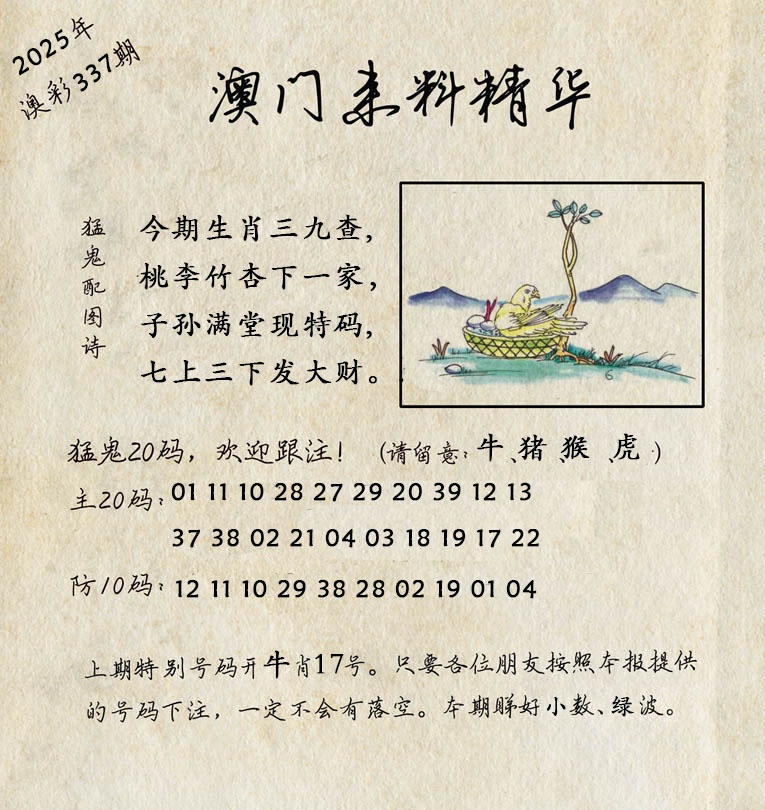 2025年
澳彩337期
澳门来料精华
猛鬼配图诗
今期生肖三九查,
桃李竹杏下一家,
子孙满堂现特码,
七上三下发大财。
猛鬼20码，欢迎跟注！（请留意：牛、猪、猴、虎、）
主20码：01 11 10 28 27 29 20 39 12 13
37 38 02 21 04 03 18 19 17 22
防10码：12 11 10 29 38 28 02 19 01 04
上期特别号码开牛肖17号。只要各位朋友按照本报提供
的号码下注，一定不会有落空。本期睇好小数、绿波。